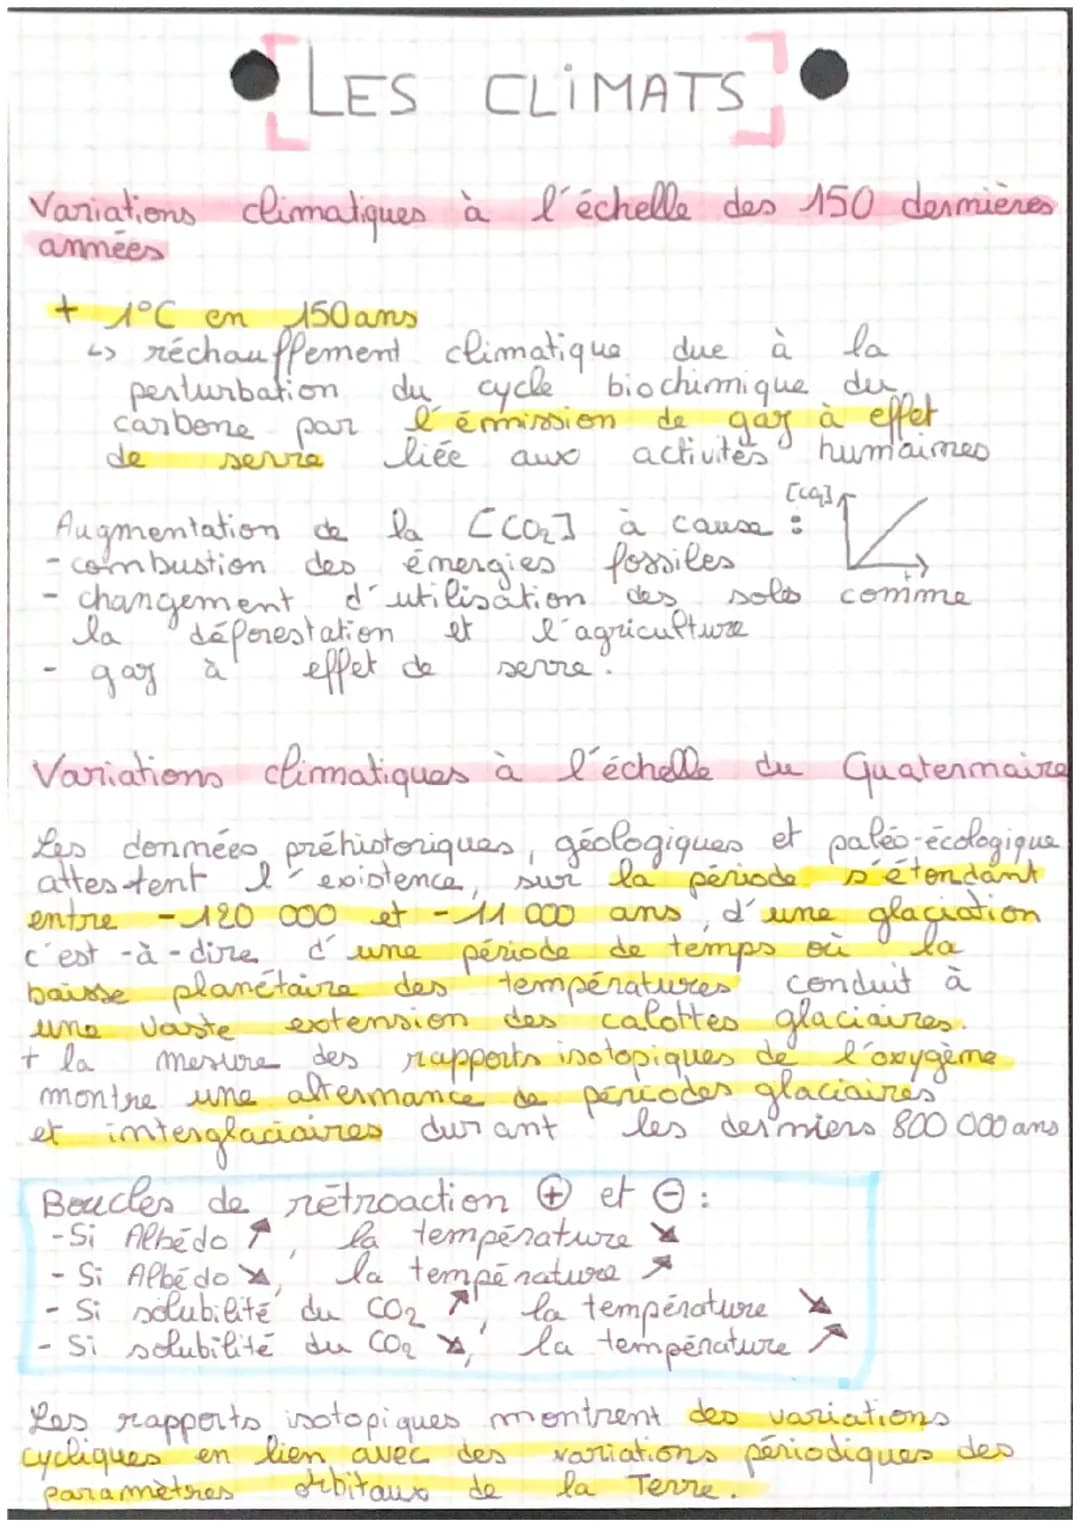 LES CLIMATS
Variations climatiques à l'échelle des 150 dernières
années
+ 1°C en 150 ans
↳ réchauffement climatique due à la
perturbation du cycle biochimique du
carbone par l'émission de gaz à effet
de serre liée aux activités humaines
[CO2]
Augmentation de la [CO2] à cause :
- combustion des énergies fossiles
t
- changement d'utilisation des sols comme
la déforestation et l'agriculture
- gaz à effet de serre.
Variations climatiques à l'échelle du Quaternaire
Les données préhistoriques, géologiques et paléo-écologique
attestent l'existence, sur la période s'étendant
entre -120 000 et -11 000 ans, d'une glaciation
c'est-à-dire d'une période de temps où la
baisse planétaire des températures conduit à
une vaste extension des calottes glaciaires.
+ la mesure des rapports isotopiques de l'oxygène
montre une alternance de périodes glaciaires
et interglaciaires durant les derniers 800 000 ans
Boucles de rétroaction ⊕ et ⊖ :
- Si Albédo ↗, la température ↘
- Si Albédo ↘, la température ↗
- Si solubilité du CO2 ↗, la température ↘
- Si solubilité du CO2 ↘, la température ↗
Les rapports isotopiques montrent des variations
cycliques en lien avec des variations périodiques des
paramètres orbitaux de la Terre.